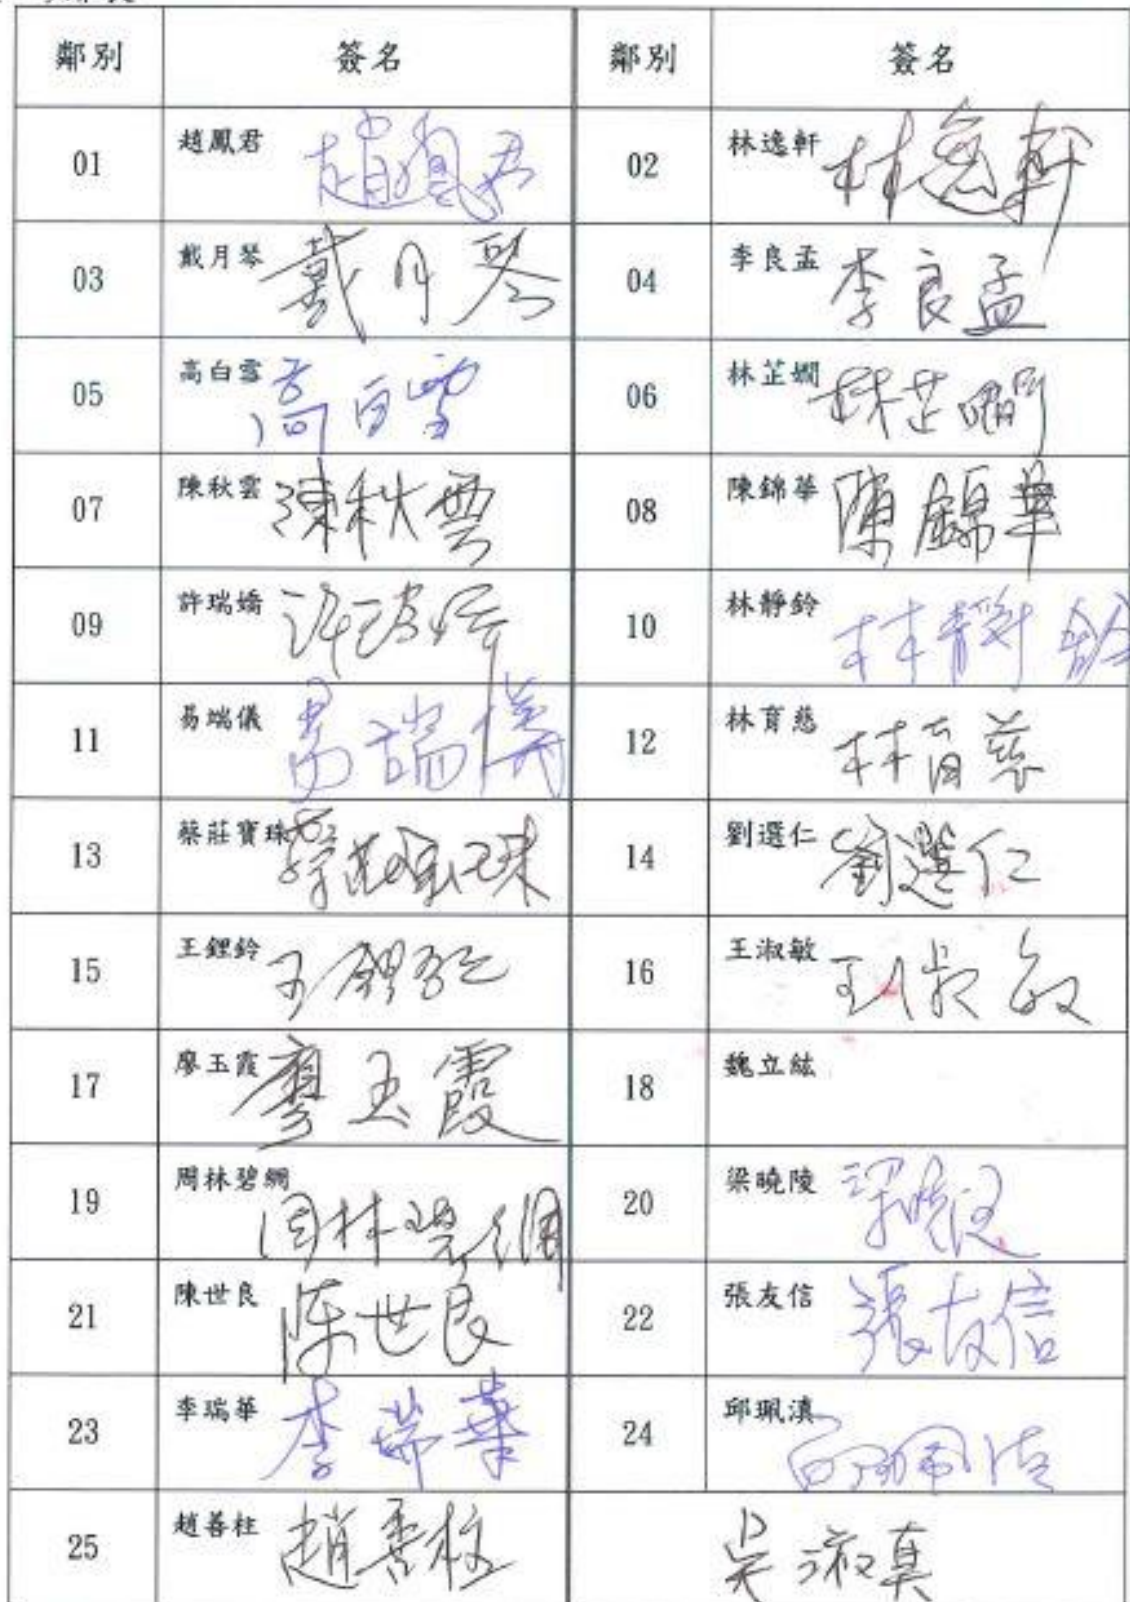 鄰別 簽名 鄰別 簽名
01 趙鳳君 趙鳳君 02 林逸軒 林逸軒
03 戴月琴 戴月琴 04 李良孟 李良孟
05 高白雪 高白雪 06 林芷嫺 林芷嫺
07 陳秋雲 陳秋雲 08 陳錦華 陳錦華
09 許瑞嬌 許瑞嬌 10 林靜鈴 林靜鈴
11 易端儀 易端儀 12 林育慈 林育慈
13 蔡莊寶珠 蔡莊寶珠 14 劉選仁 劉選仁
15 王鋰鈴 王鋰鈴 16 王淑敏 王淑敏
17 廖玉霞 廖玉霞 18 魏立紘
19 周林碧綢 周林碧綢 20 梁曉陵 梁曉陵
21 陳世良 陈世良 22 張友信 張友信
23 李瑞華 李瑞華 24 邱珮滇 邱珮滇
25 趙善柱 趙善柱 吳淑真